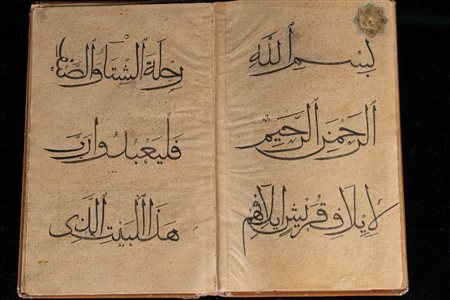 بسم الله
الرحمن الرحيم
لإيلاف قريش إيلافهم
رحلة الشتاء والصيف
فليعبدوا رب
هذا البيت الذي